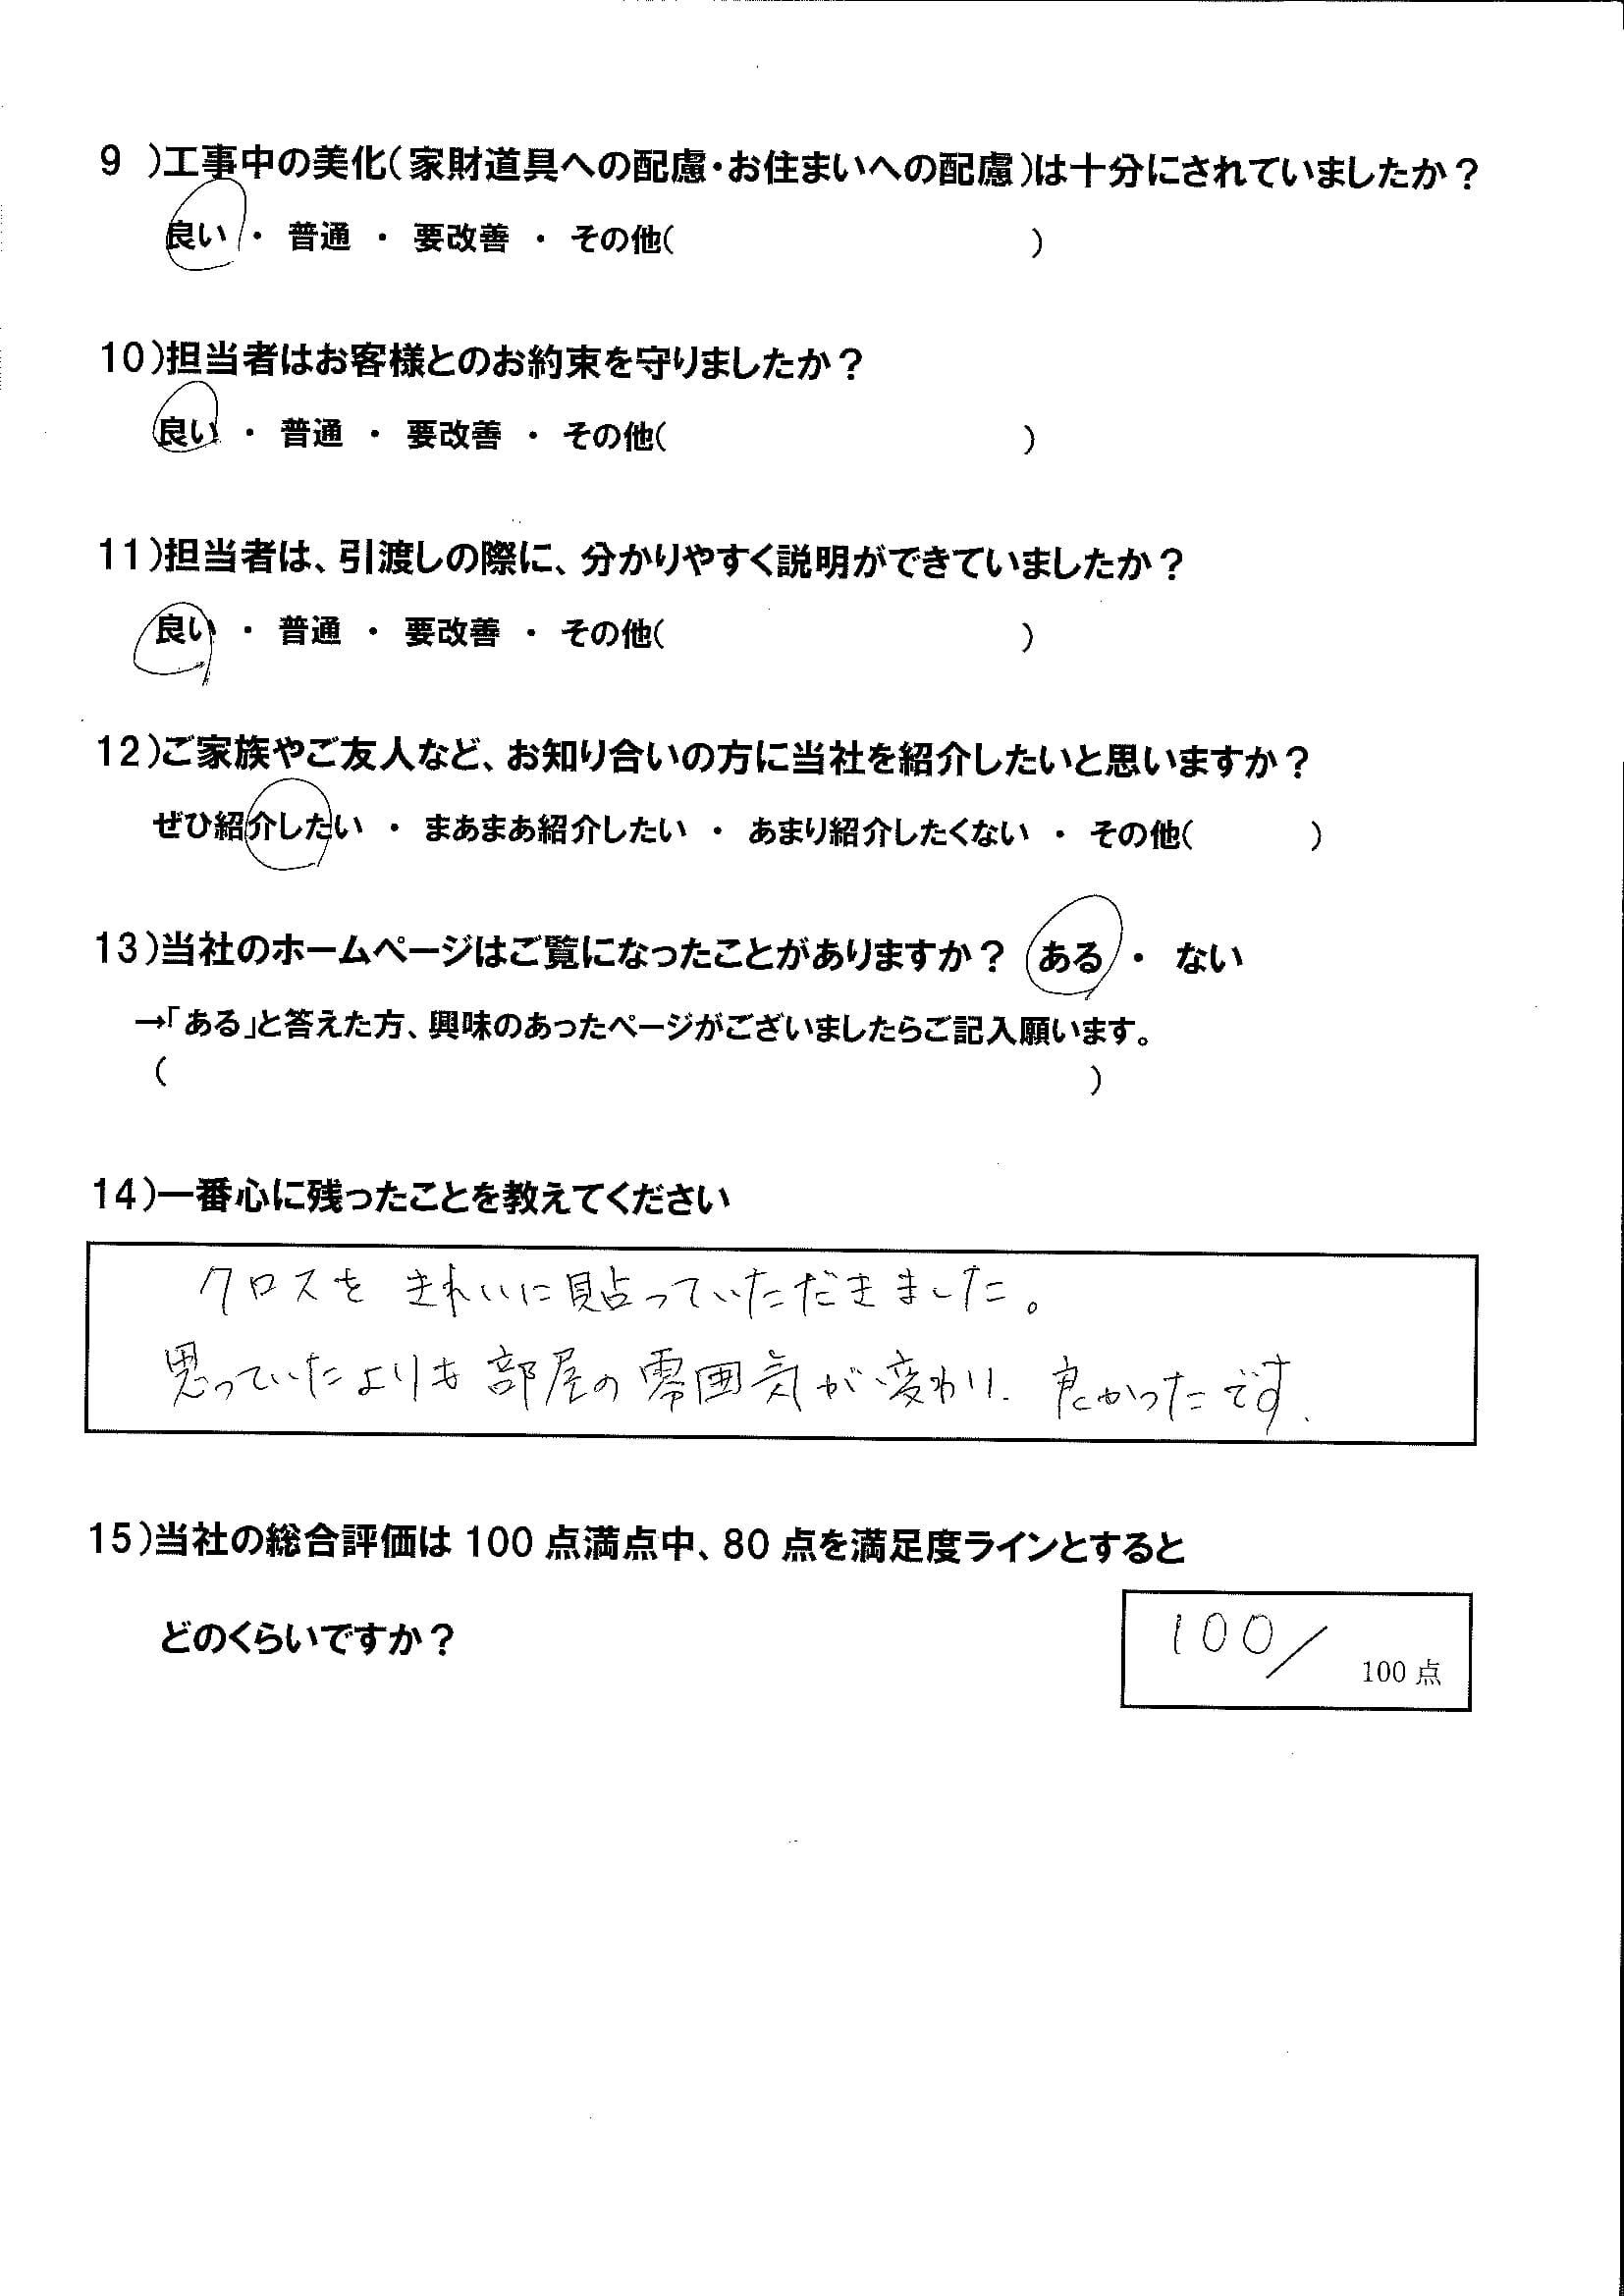 9 )工事中の美化(家財道具への配慮・お住まいへの配慮)は十分にされていましたか？
良い ・ 普通 ・ 要改善 ・ その他( )
10)担当者はお客様とのお約束を守りましたか？
良い ・ 普通 ・ 要改善 ・ その他( )
11)担当者は、引渡しの際に、分かりやすく説明ができていましたか？
良い ・ 普通 ・ 要改善 ・ その他( )
12)ご家族やご友人など、お知り合いの方に当社を紹介したいと思いますか？
ぜひ紹介したい ・ まあまあ紹介したい ・ あまり紹介したくない ・ その他( )
13)当社のホームページはご覧になったことがありますか？ ある ・ ない
→「ある」と答えた方、興味のあったページがございましたらご記入願います。
( )
14)一番心に残ったことを教えてください
クロスを きれいに貼っていただきました。
思っていたよりも 部屋の 雰囲気が 変わり、良かったです、
15)当社の総合評価は 100 点満点中、80 点を満足度ラインとすると
どのくらいですか？
100/ 100 点